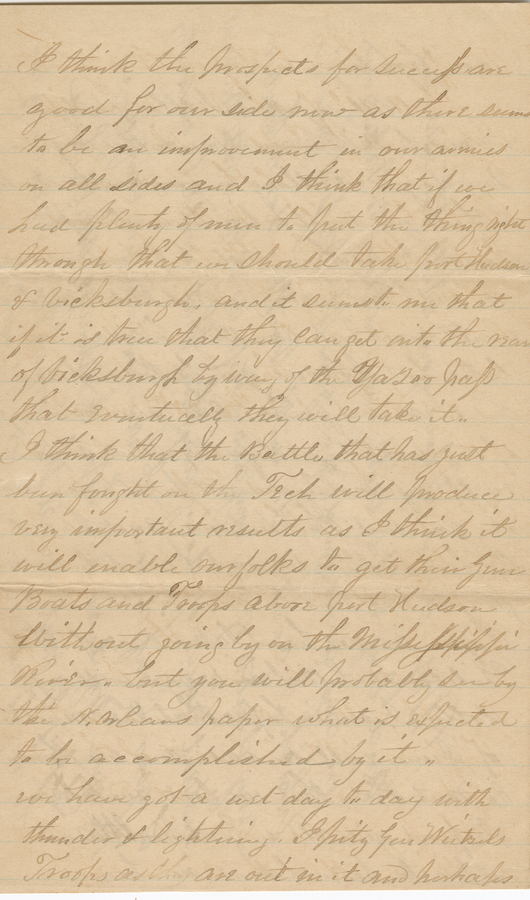 I think the prospects for success are
good for our side now as there seems
to be an improvement in our armies
on all sides and I think that if we
had plenty of men to put the thing right
through that we should take port Hudson
& Vicksburgh. and it seems to me that
if it is true that they can get into the rear
of Vicksburgh by way of the Yazoo pass
that eventually they will take it.
I think that the Battle that has just
been fought on the Tech will produce
very important results as I think it
will enable our folks to get their Gun
Boats and Troops above port Hudson
without going by on the Mississippi
River. but you will probably see by
the N. Orleans paper what is expected
to be accomplished by it.
we have got a wet day to day with
thunder & lightning. I pity Gen Weitzels
Troops as they are out in it and perhaps